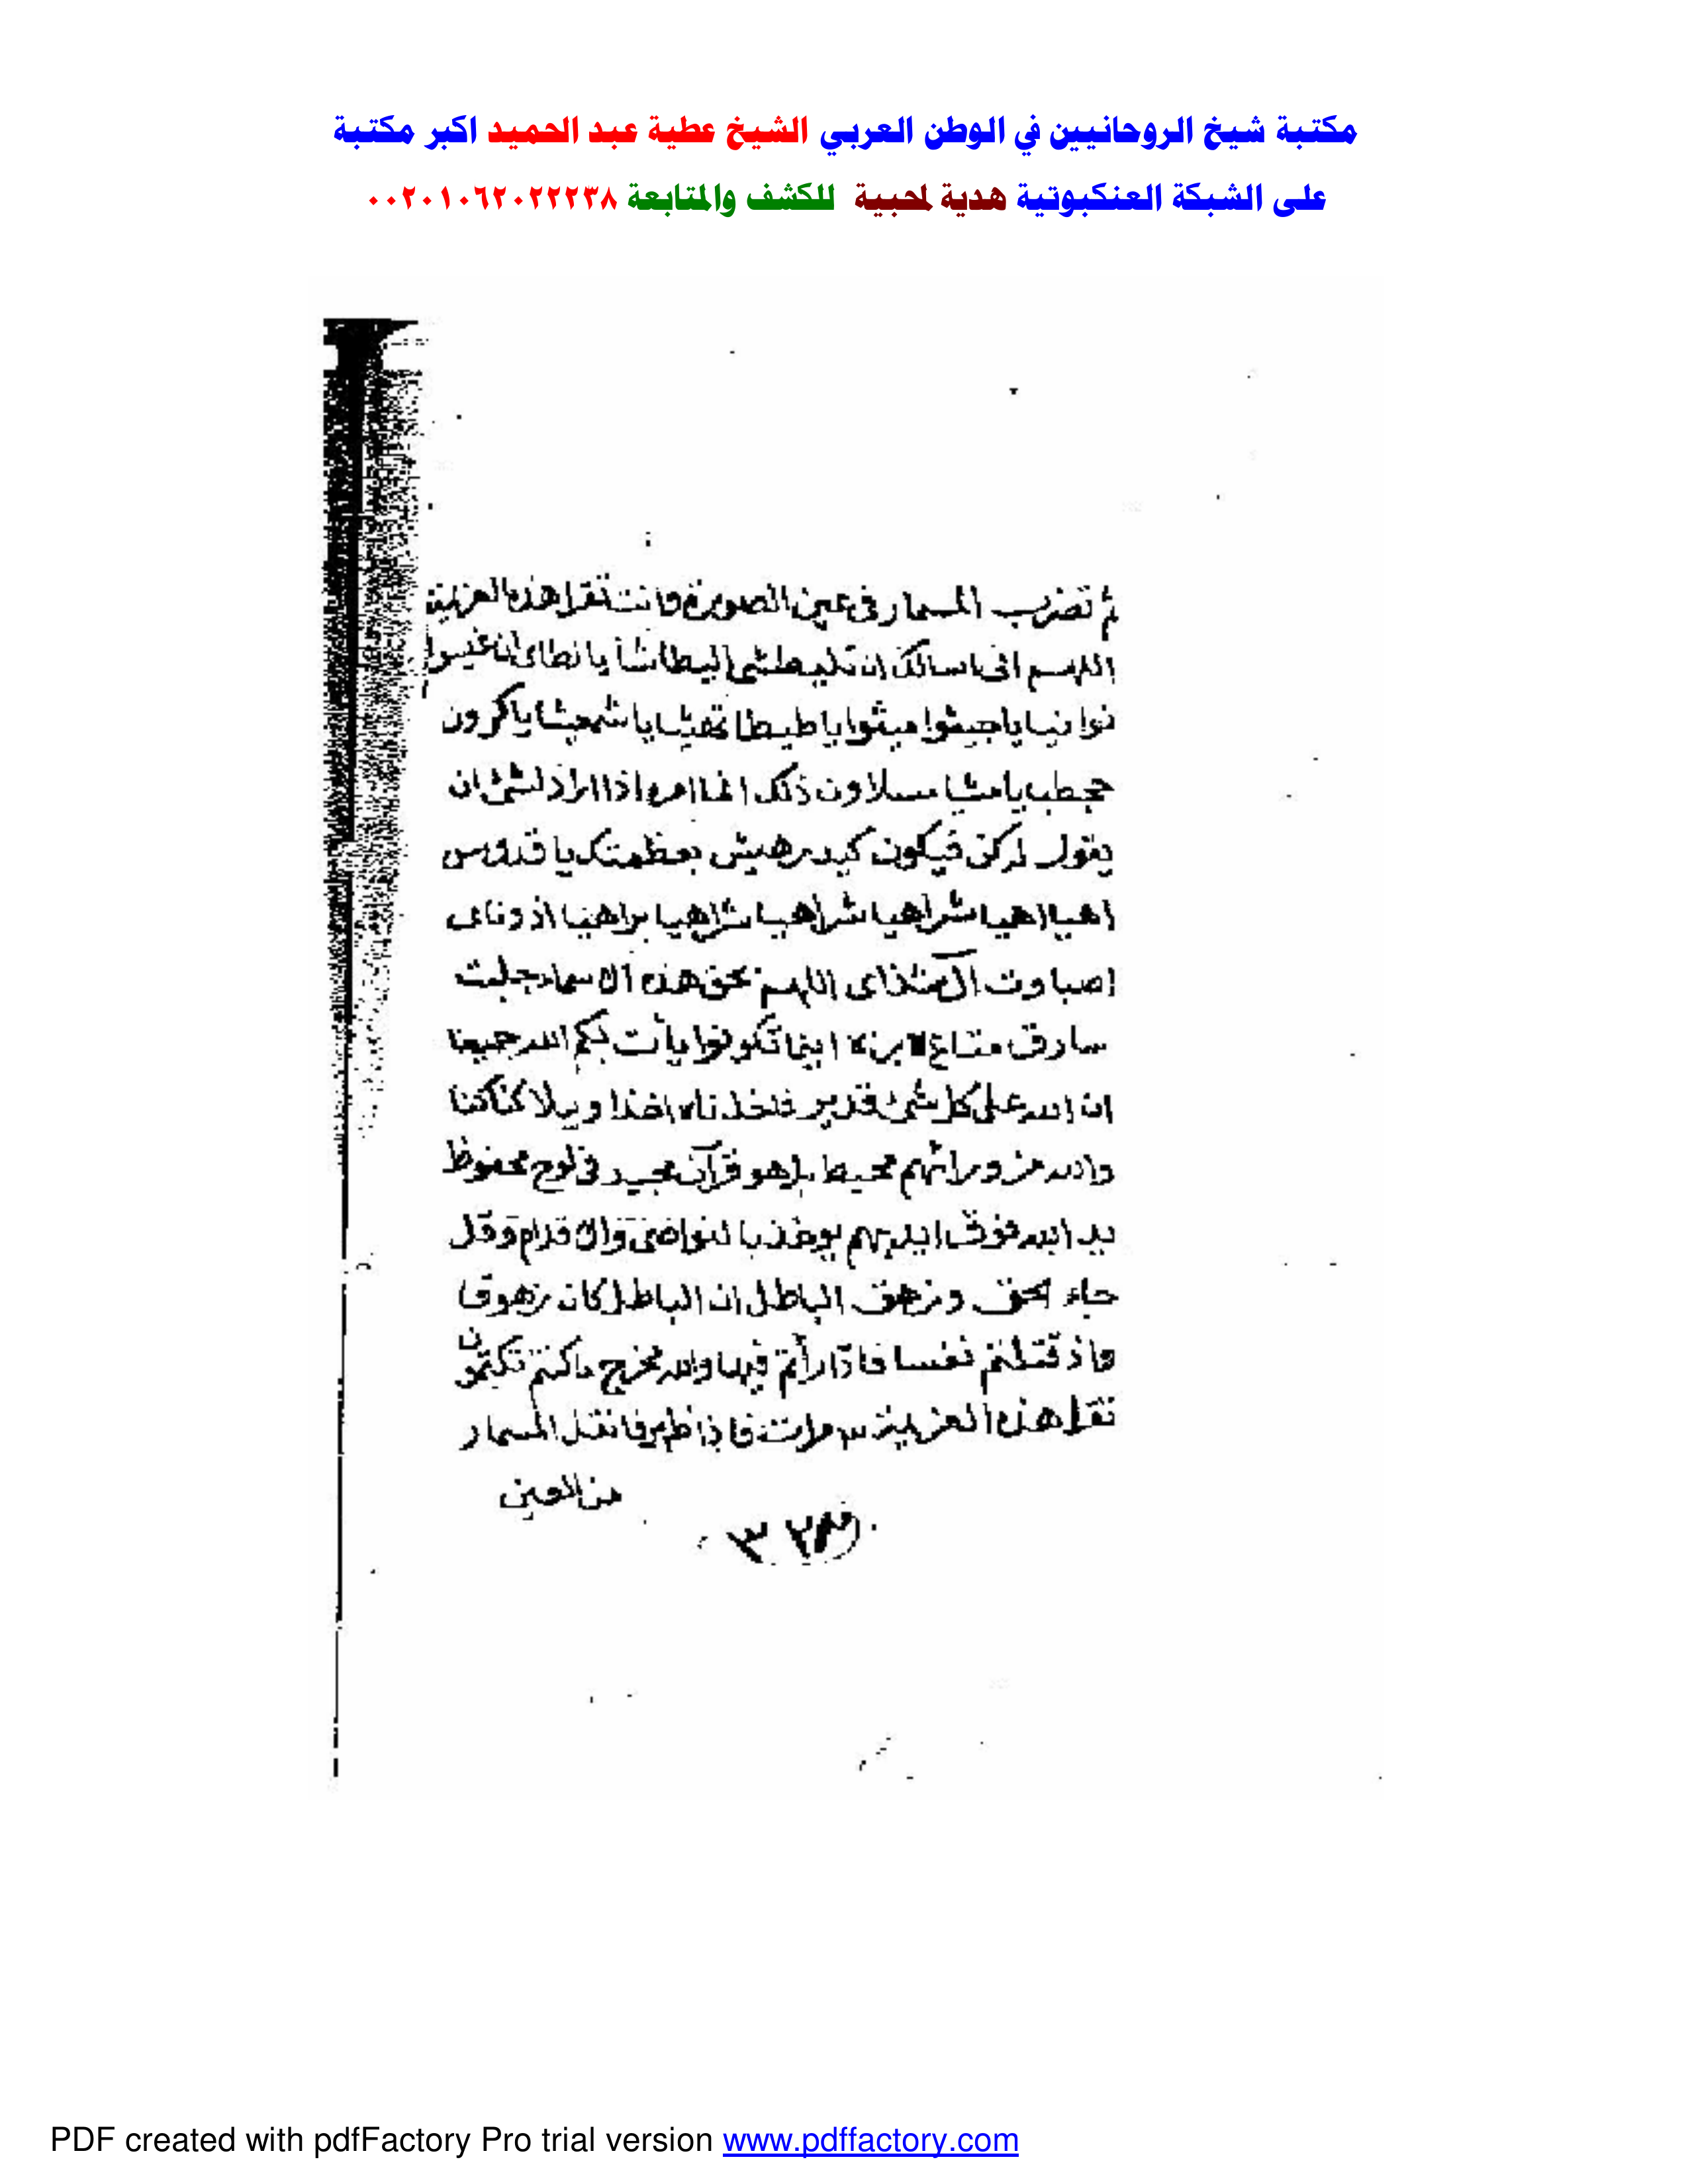 مكتبة شيخ الروحانيين في الوطن العربي الشيخ عطية عبد الحميد اكبر مكتبة
على الشبكة العنكبوتية هدية لمحبية للكشف والمتابعة ٠٠٢٠١٠٦٢٠٢٢٢٣٨
ثم تضرب المسمار في عين الصورة وانت تقرا هذه العزيمة
اللهم انى اسالك
نوانيا يا طيطا يا شمعيثا يا كرون
ذلك انما امره اذا اراد لشئ ان
يقول له كن فيكون كيد رهيش بعظمتك يا قدوس
اهيا اهيا شراهيا شراهيا شراهيا براهيا اذوناى
اصباوت اللهم بحق هذه الاسما جلبت
سارق متاع اينما تكونوا يأت بكم الله جميعا
ان الله على كل شئ قدير فاخذناه اخذا وبيلا
والله من ورائهم محيط بل هو قرآن مجيد فى لوح محفوظ
يد الله فوق ايديهم يوخذ بالنواصى والاقدام وقل
جاء الحق وزهق الباطل ان الباطل كان زهوقا
واذ قتلتم نفسا فادّارأتم فيها والله مخرج ما كنتم تكتمون
تقرا هذه العزيمة مرات فاذا ظهر فانقل المسمار
من العين
PDF created with pdfFactory Pro trial version www.pdffactory.com